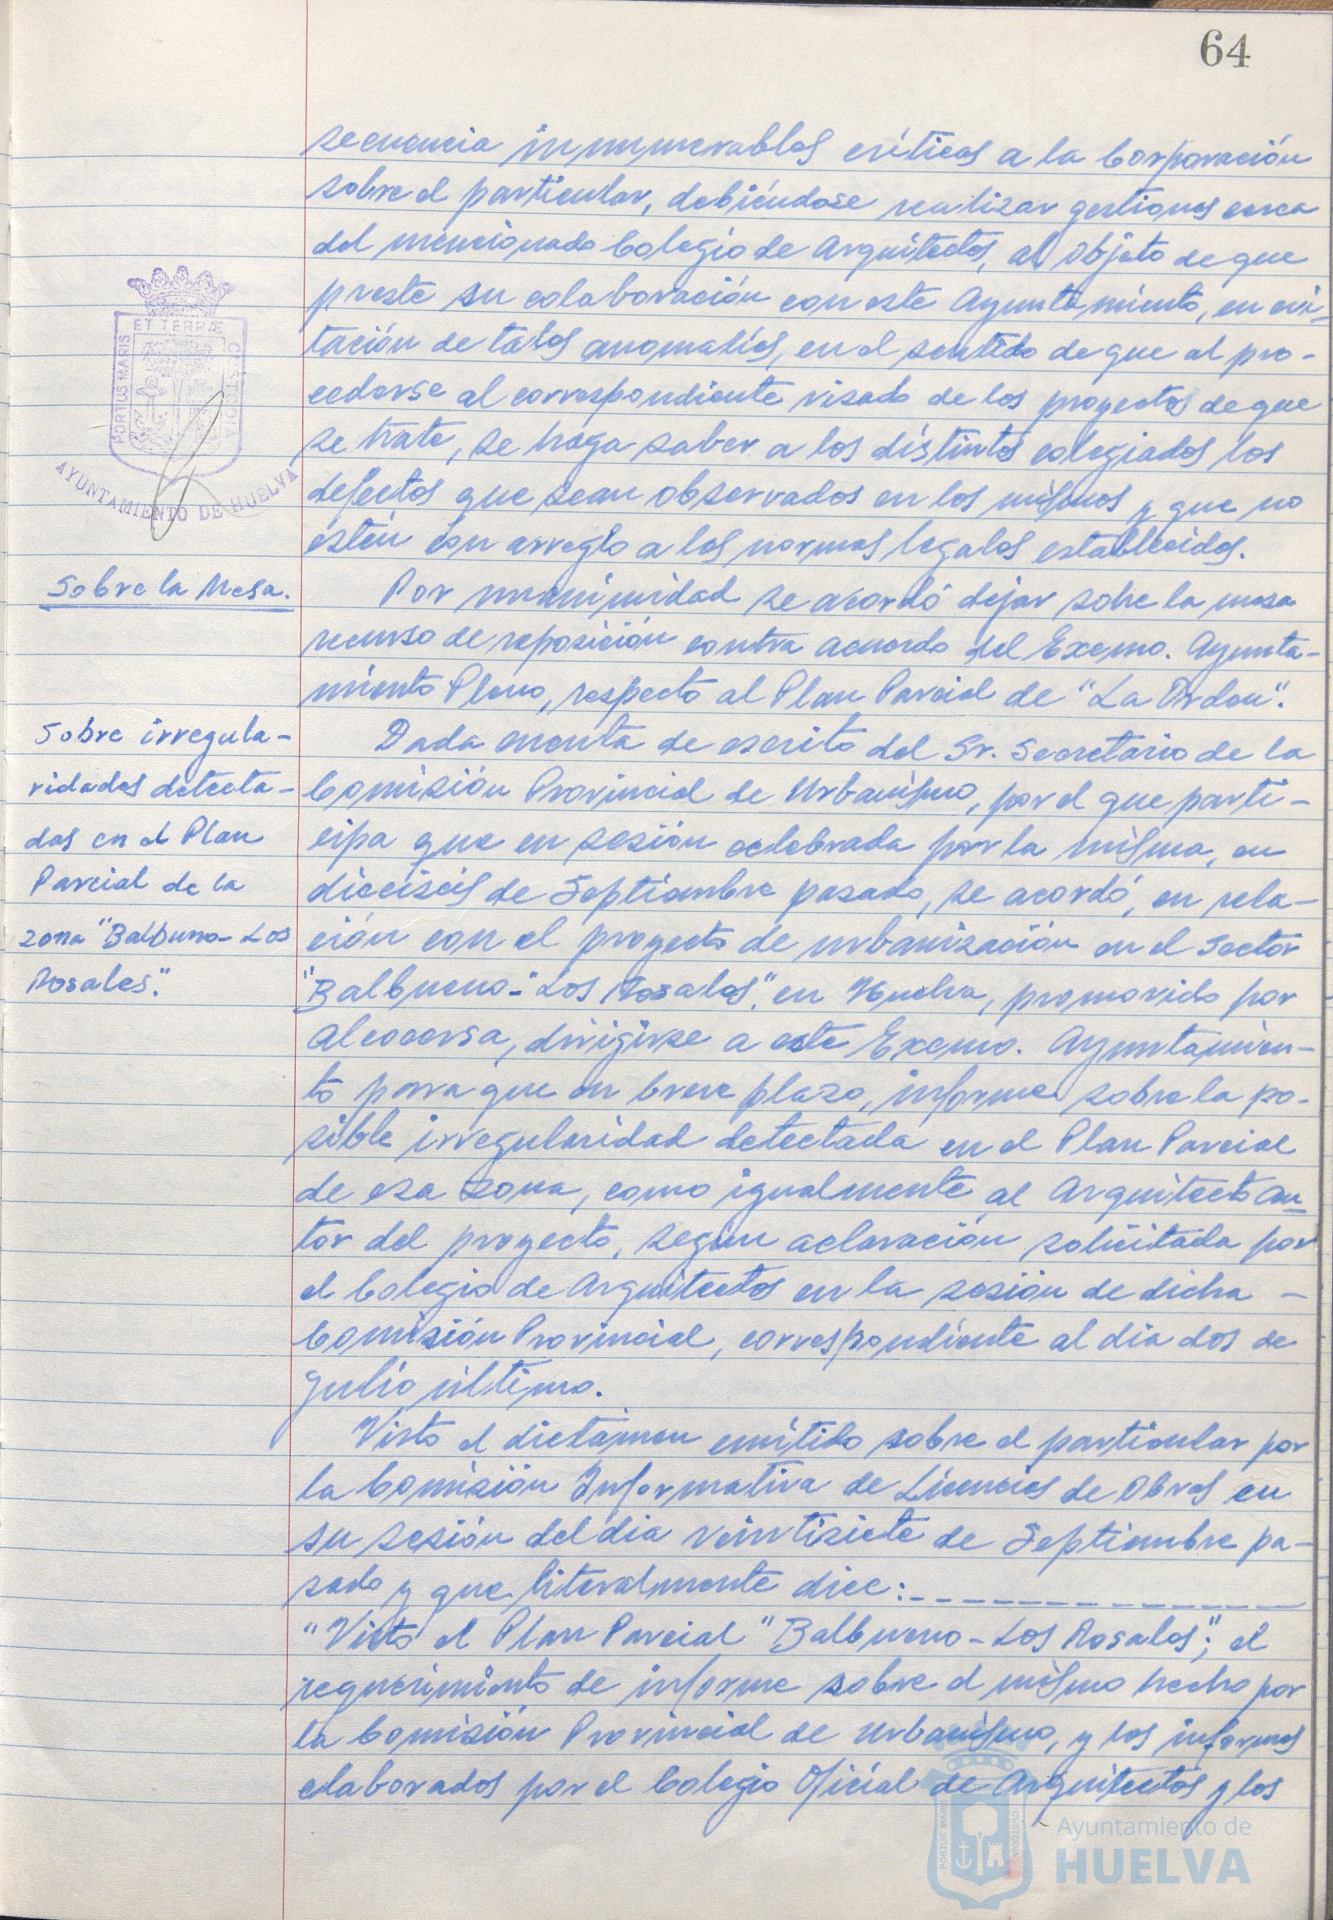 64
secuencia innumerables críticas a la Corporación
sobre el particular, debiéndose realizar gestiones cerca
del mencionado Colegio de Arquitectos, al objeto de que
preste su colaboración con este Ayuntamiento, en evi-
tación de tales anomalías, en el sentido de que al pro-
cederse al correspondiente visado de los proyectos de que
se trate, se haga saber a los distintos colegiados los
defectos que sean observados en los mismos y que no
estén con arreglo a las normas legales establecidas.
ET TERRÆ
PORTUS MARIS
CUSTODIA
AYUNTAMIENTO DE HUELVA
Sobre la Mesa.
Por unanimidad se acordó dejar sobre la mesa
recurso de reposición contra acuerdo del Excmo. Ayunta-
miento Pleno, respecto al Plan Parcial de "La Orden".
Sobre irregula-
ridades detecta-
das en el Plan
Parcial de la
zona "Balbuno-Los
Rosales".
Dada cuenta de escrito del Sr. Secretario de la
Comisión Provincial de Urbanismo, por el que parti-
cipa que en sesión celebrada por la misma, en
dieciseis de Septiembre pasado, se acordó, en rela-
ción con el proyecto de urbanización en el Sector
"Balbueno-"Los Rosales", en Huelva, promovido por
Alcocersa, dirigirse a este Excmo. Ayuntamien-
to para que en breve plazo, informe sobre la po-
sible irregularidad detectada en el Plan Parcial
de esa zona, como igualmente al Arquitecto au
tor del proyecto, segun aclaración solicitada por
el Colegio de Arquitectos en la sesión de dicha -
Comisión Provincial, correspondiente al dia dos de
Julio último.
Visto el dictámen emitido sobre el particular por
la Comisión Informativa de Licencias de Obras en
su sesión del dia veintisiete de Septiembre pa-
sado y que literalmente dice:
"Visto el Plan Parcial "Balbueno-Los Rosales"; el
requerimiento de informe sobre el mismo hecho por
la Comisión Provincial de Urbanismo, y los informes
elaborados por el Colegio Oficial de Arquitectos y los
PORTUS MARIS
CUSTODIA
Ayuntamiento de
HUELVA